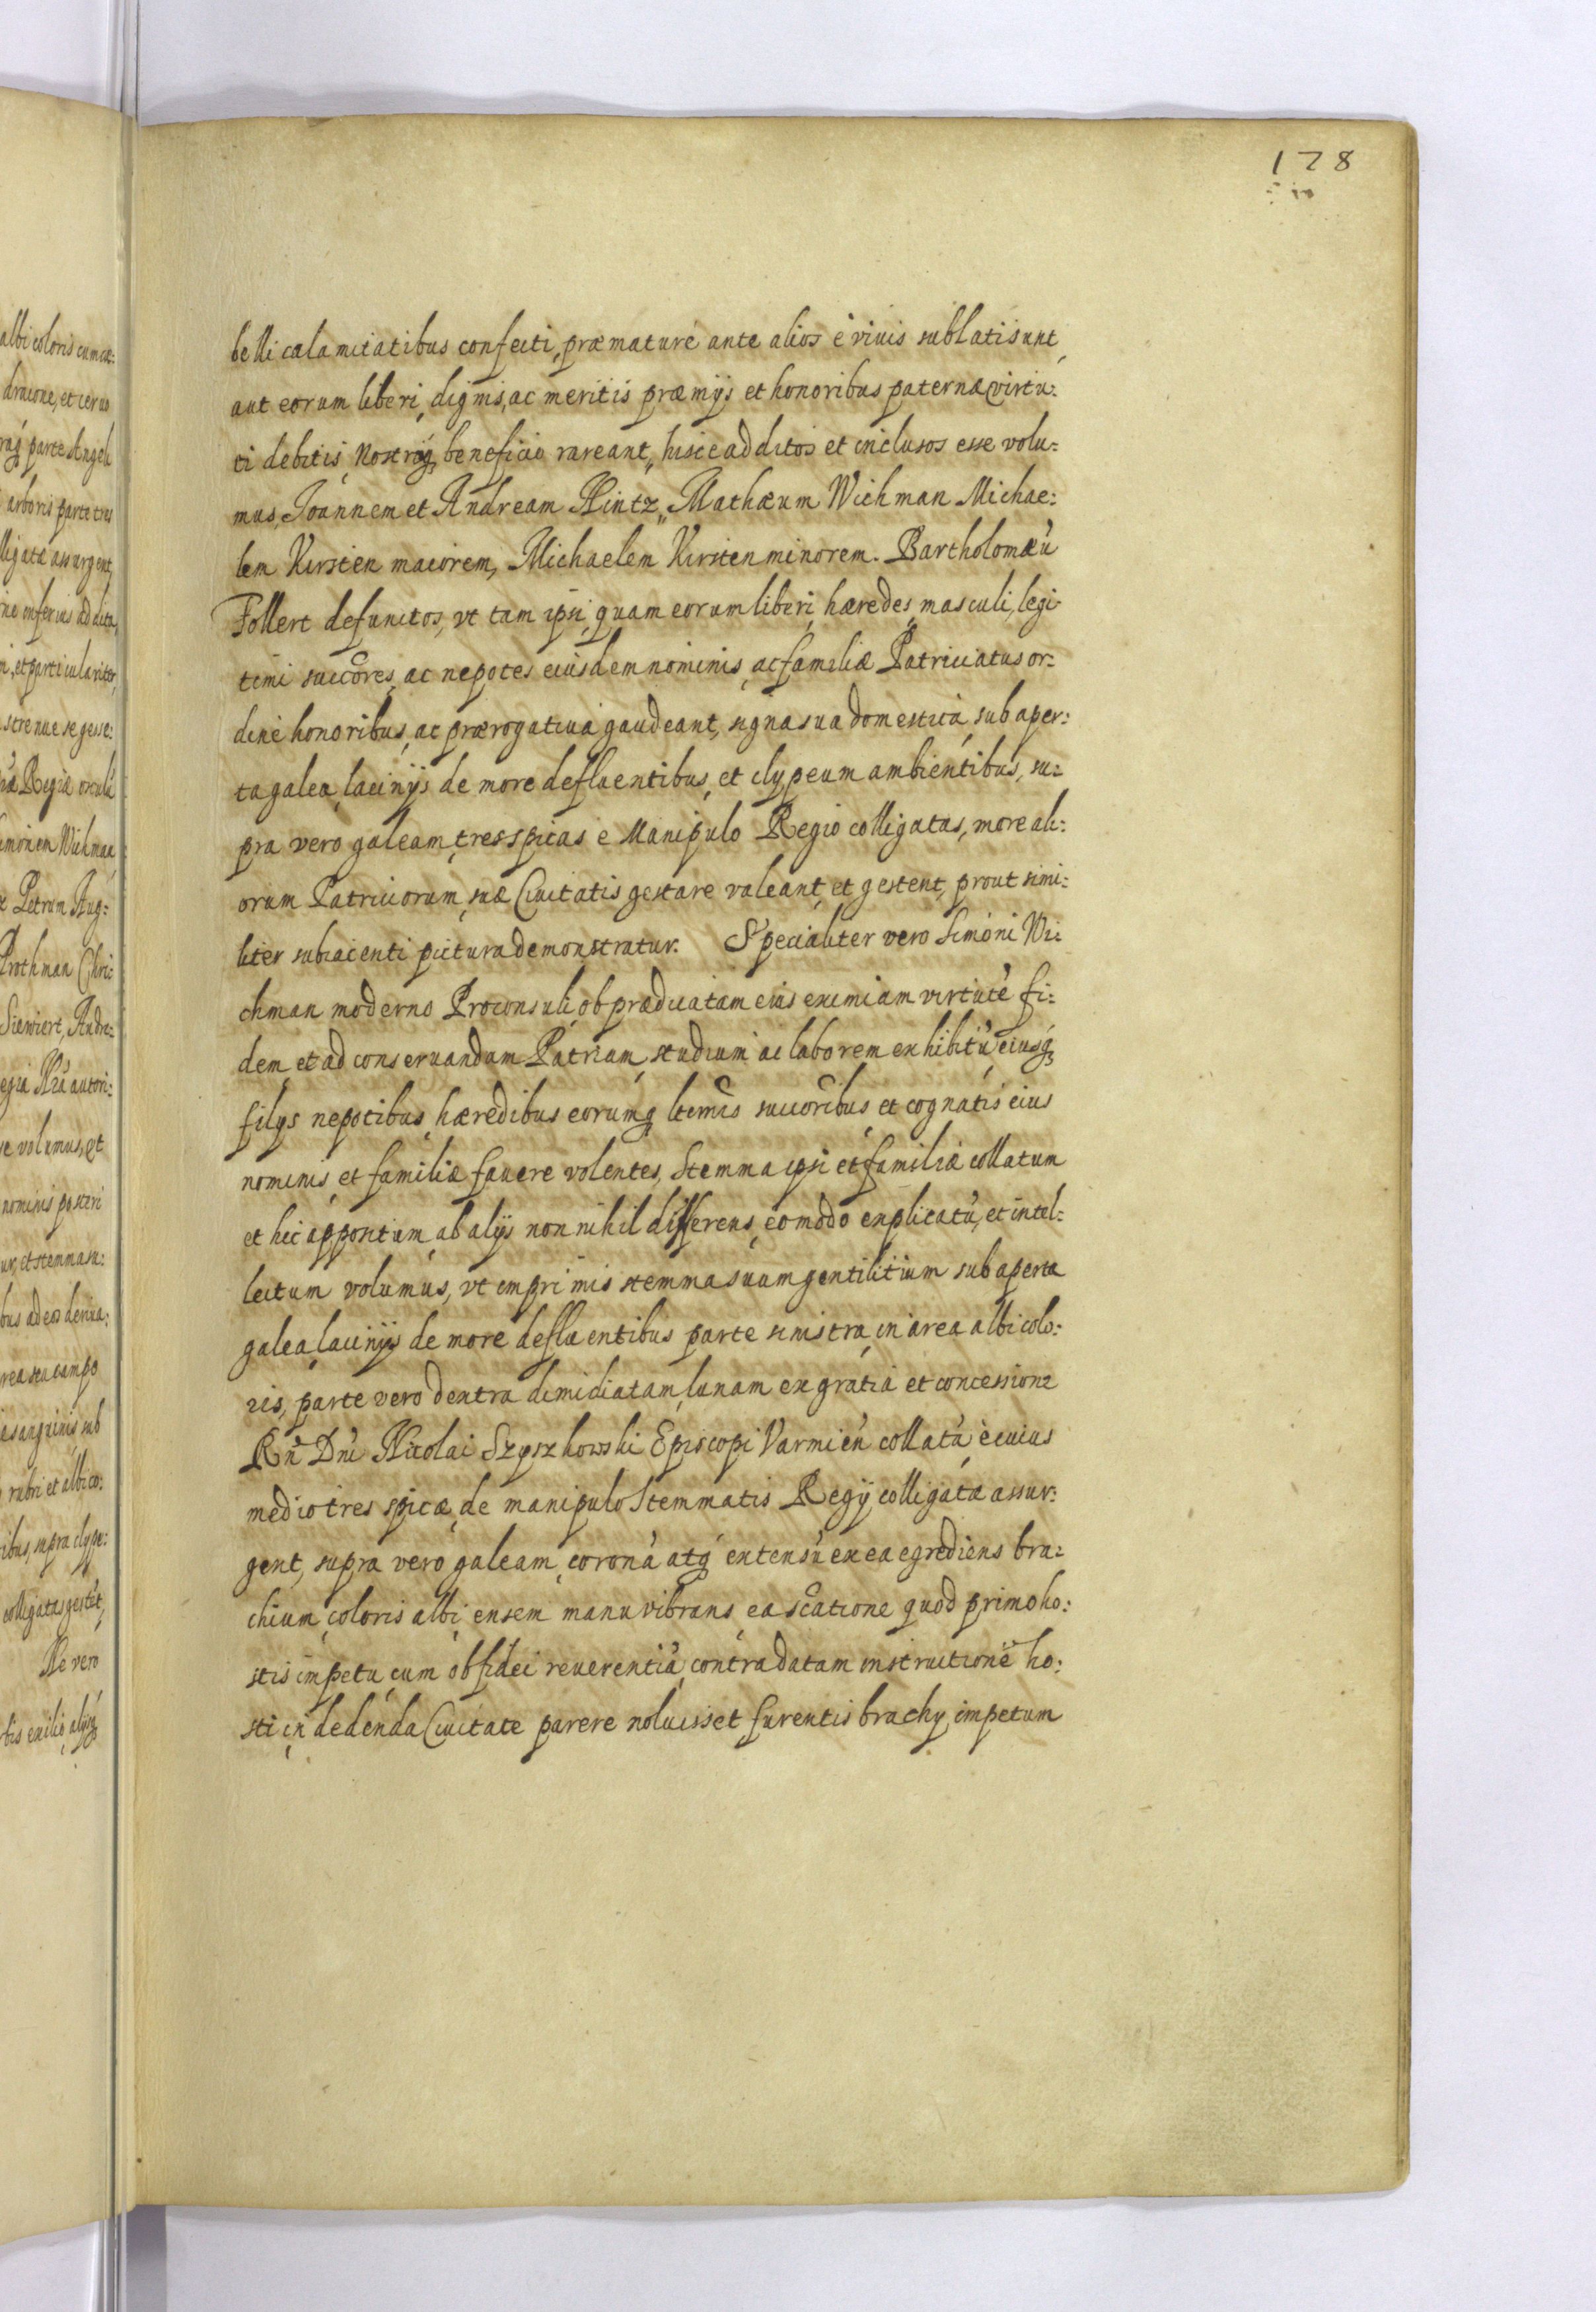 178
belli calamitatibus confecti, præmaturè ante alios è viuis sublati sunt,
aut eorum liberi, dignis, ac meritis præmijs et honoribus paternæ virtu:
ti debitis, Nostroq́ beneficio careant, hisce additos et inclusos esse volu:
mus, Joannem et Andream Hintz, Mathæum Wichman Michae:
lem Kirsten maiorem, Michaelem Kirsten minorem. Bartholomæu̇
Follert defunctos, vt tam ipsi, quam eorum liberi, hæredes, masculi, legi
timi succores, ac nepotes eiusdem nominis, ac familiæ Patriciatus or:
dine honoribus, ac prærogatiua gaudeant, signa sua domestica, sub aper:
ta galea, lacinijs de more defluentibus, et clypeum ambientibus, su:
pra vero galeam, tres spicas e Manipulo Regio colligatas, more ali:
orum Patriciorum, suæ Ciuitatis gestare valeant, et gestent, prout simi:
liter subiacenti pictura demonstratur. Specialiter vero Simoni Wi:
chman moderno Proconsuli, ob prædicatam eius eximiam virtutē fi:
dem et ad conseruandam Patriam, studium ac laborem exhibitū, eiusq́
filijs nepotibus, hæredibus eorumq́ ltimis succoribus, et cognatis eius
nominis, et familiæ fauere volentes, Stemma ipsi et familiæ collatum
et hic appontum, ab alijs nonnihil differens, eo modo explicatū, et intel:
lectum volumus, vt imprimis stemma suum gentilitium sub aperta
galea, lacinijs de more defluentibus parte sinistra, in area albi colo:
ris, parte vero dextra dimidiatam, lunam ex gratia et concessione
Rn̄ Dn̄i Nicolai Szyszkowski Episcopi Varmien̄ collatā, è cuius
medio tres spicæ, de manipulo Stemmatis Regij colligatæ assur:
gent, supra vero galeam, coronā atq́ extensū ex ea egrediens bra:
chium, coloris albi, ensem manu vibrans, ea rātione quod primo ho:
stis impetu, cum ob fidei reuerentiā, contra datam instructionē ho:
sti in dedenda Ciuitate parere noluisset furentis brachij impetum
albi coloris cum cæ:
dracone, et ceruo
parte Angeli
arboris parte tres
ligatæ assurgent,
inferius addita,
et particulariter,
strenue se gesse:
Regiæ
Simonem Wichman,
Petrum Aug:
Prothman Chri:
Siewiert, Andre:
autori:
volumus, et
nominis posteri
et stemma su:
bus ad eos deriua:
campo
sanguinis sub
rubri et albi co:
supra clype:
colligatas gestēt,
Ne vero
exilio, alijsq́